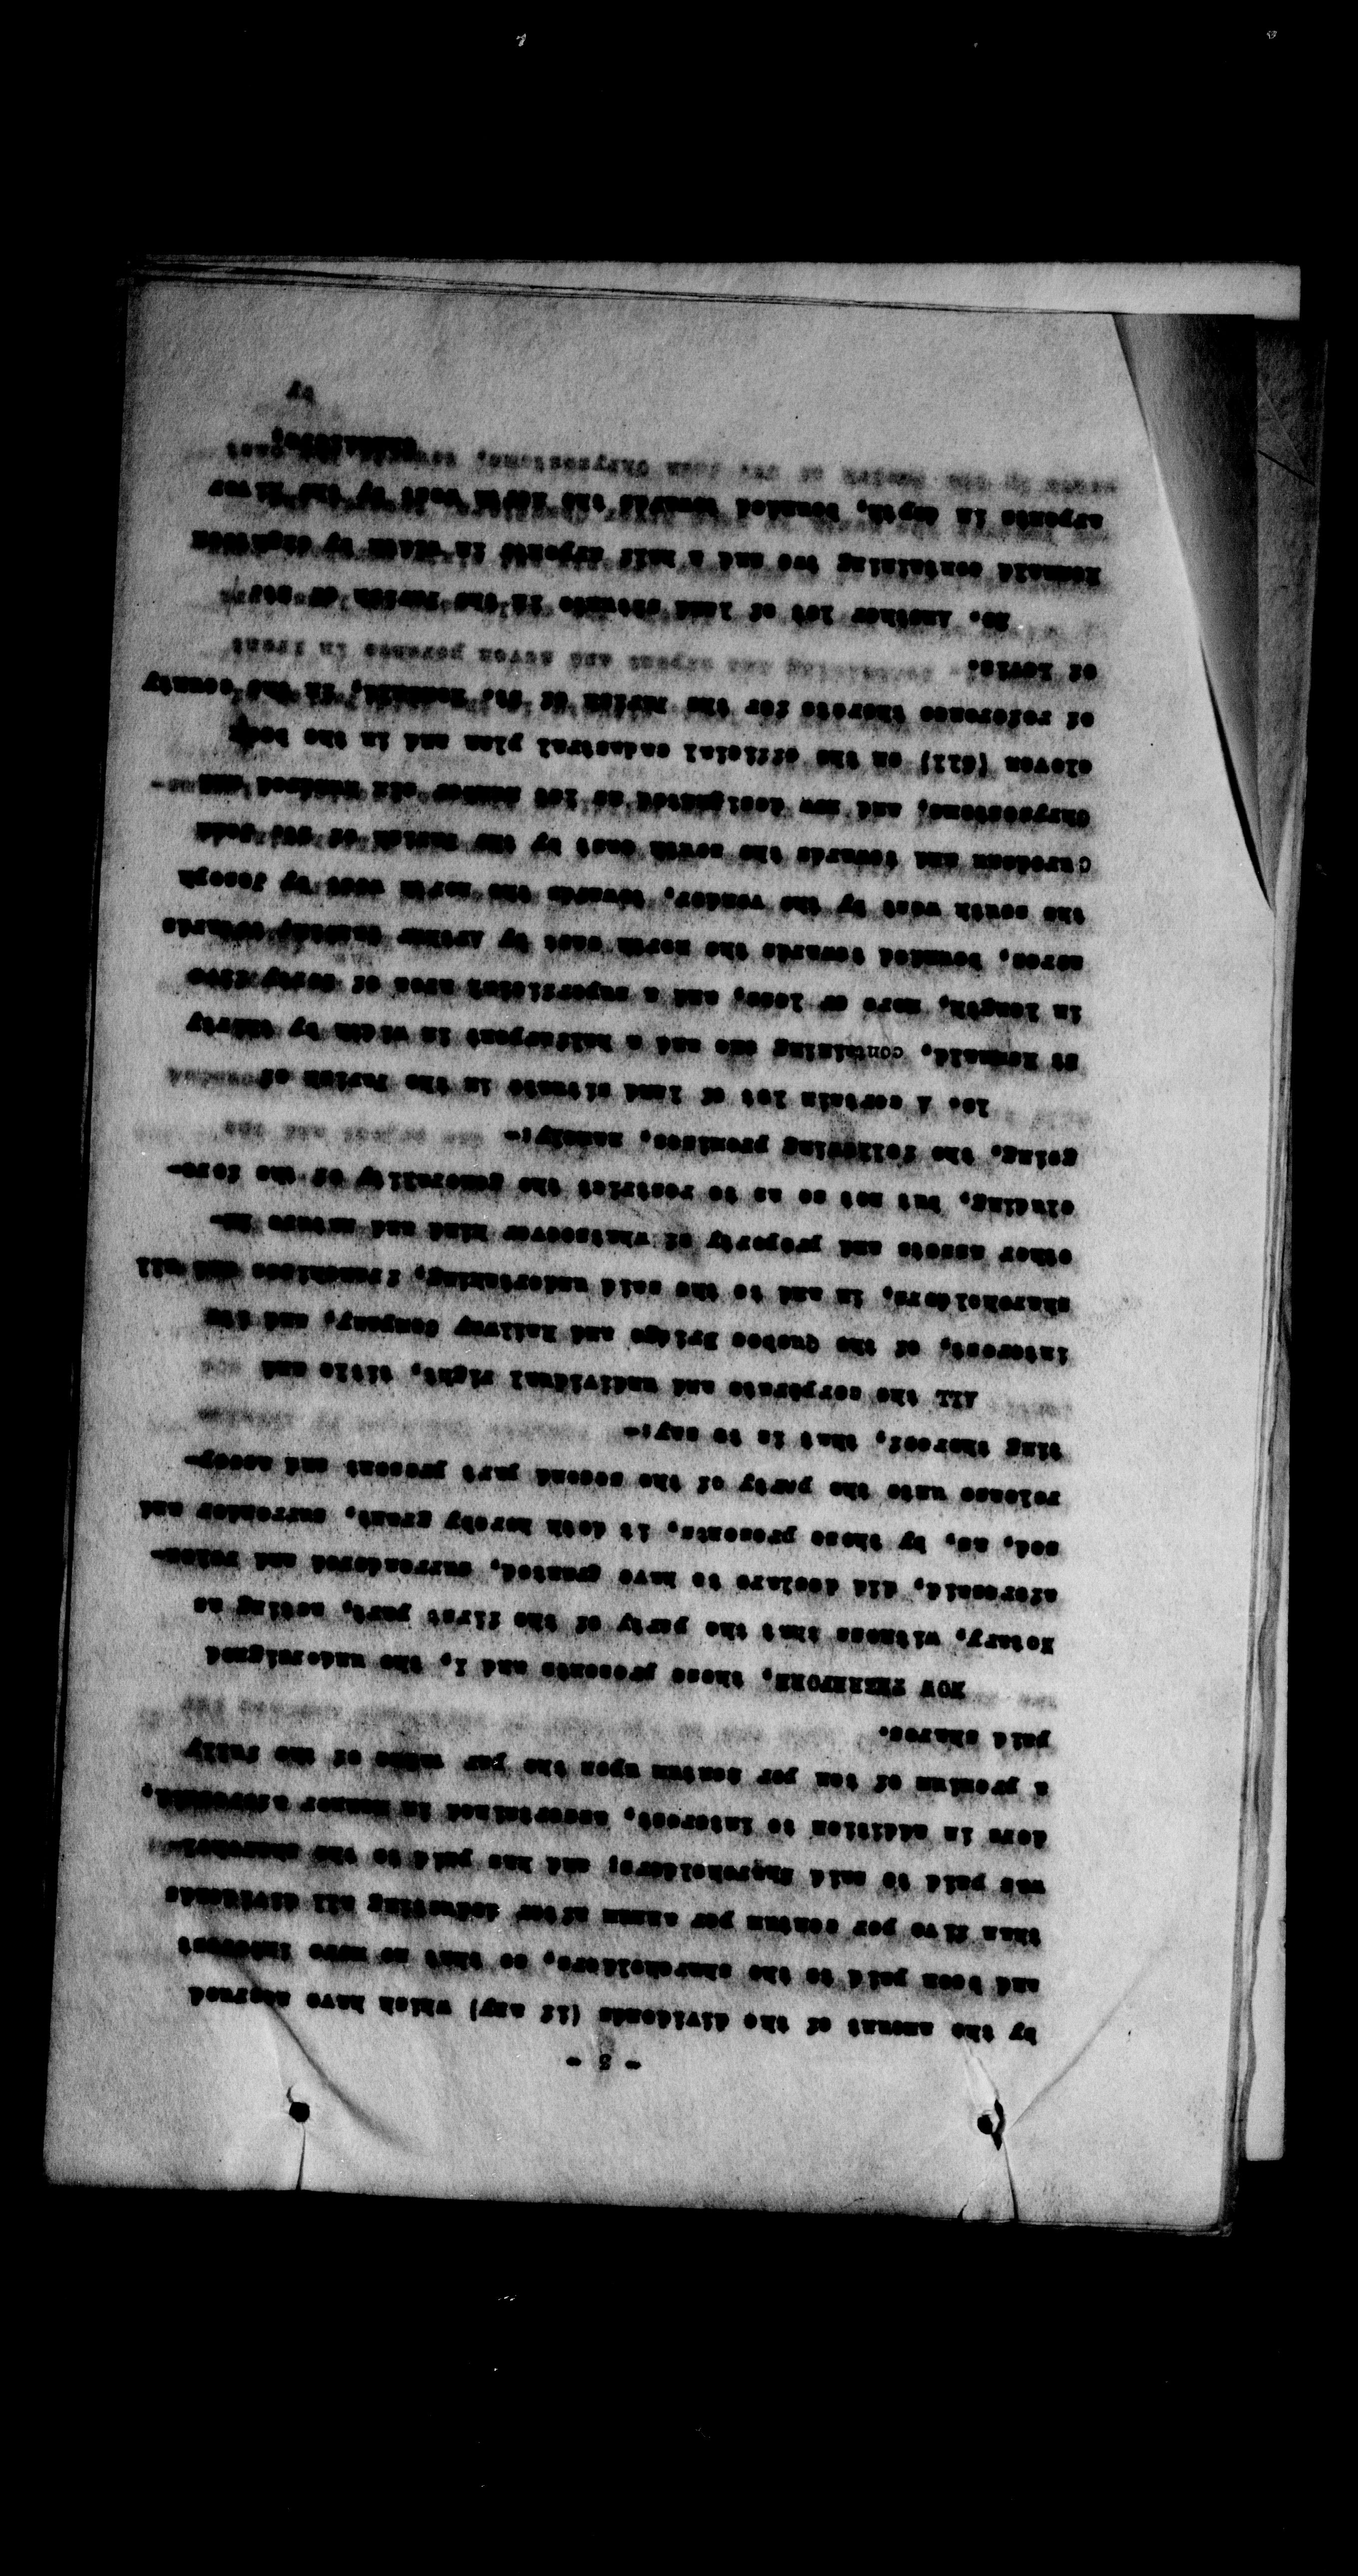 - 3 -
by the amount of the dividends (if any) which have accrued
and been paid to the shareholders, so that no more interest
than five per centum per annum after deducting all dividends
was paid to said Shareholders; and has paid to the sharehol-
ders in addition to interest, ascertained in manner aforesaid,
a premium of ten per centum upon the par value of the fully
paid shares.
NOW THEREFORE, these presents and I, the undersigned
Notary, witness that the party of the first part, acting as
aforesaid, did declare to have granted, surrendered and relea-
sed, as, by these presents, it doth hereby grant, surrender and
release unto the party of the second part present and accep-
ting thereof, that is to say:-
ALL the corporate and undividual right, title and
interest, of the Quebec Bridge and Railway Company, and its
shareholders, in and to the said undertaking, franchises and all
other assets and property of whatsoever kind and nature in-
cluding, but not so as to restrict the generality of the fore-
going, the following premises, namely:-
1o. A certain lot of land situate in the Parish of
St Romuald, containing one and a half arpent in width by thirty
in length, more or less, and a superficial area of forty five
acres, bounded towards the north east by Arthur towards
the south west by the vendor, towards the north west by Joseph
and towards the south east by the Parish of St. Jean
Chrysostome, and now designated as lot number six hundred and
eleven (611) on the official cadastral plan and in the book
of reference thereto for the Parish of St. Romuald, in the county
of Levis.
2o. Another lot of land situate in the Parish of St.
Romuald containing two and a half arpents in width by eighteen
arpents in depth, bounded towards the north west by the River